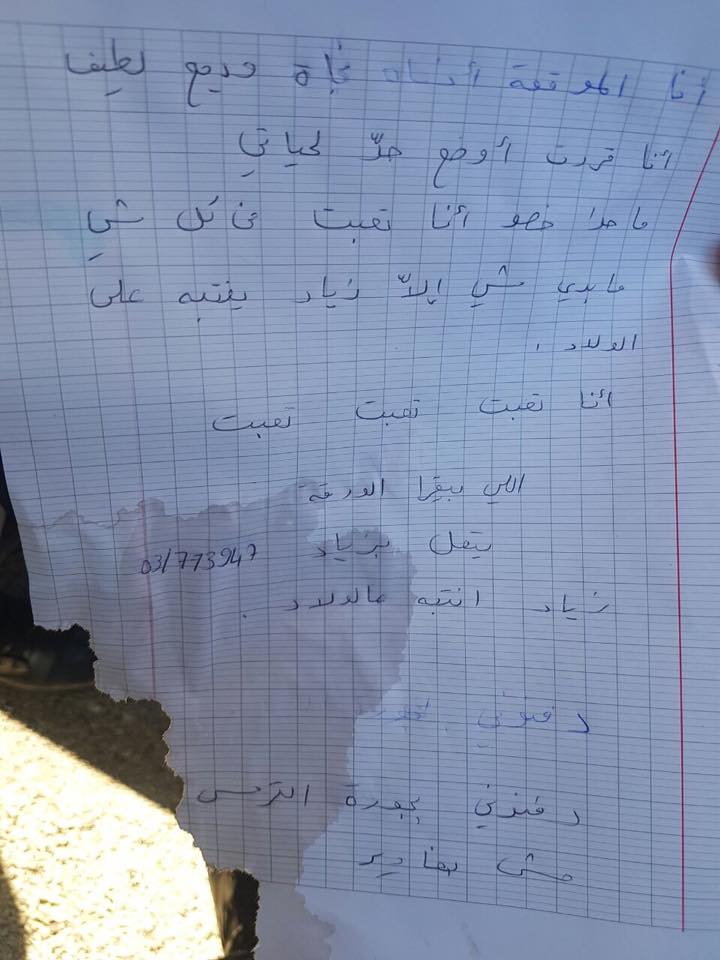 أنا الموقعة أدناه نجاة وديع لطيف
أنا قررت أوضع حدّ لحياتي
ما حدا خصو أنا تعبت من كل شي
ما بدي شي إلاّ زياد ينتبه على
الولاد .
أنا تعبت تعبت تعبت
اللي بيقرا الورقة
يتصل بزياد 03/773947
زياد انتبه عالولاد .
دفنوني بجورة
دفنوني بجورة الترمس
مش بهادير